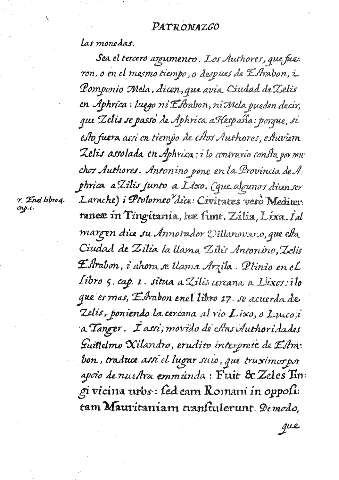 PATRONAZGO
las monedas.
Sea el tercero argumento. Los Authores, que fue-
ron, o en el mesmo tiempo, o despues de Estrabon, i
Pomponio Mela, dicen, que avia Ciudad de Zelis
en Aphrica: luego ni Estrabon, ni Mela pueden decir,
que Zelis se passò de Aphrica a Hespaña: porque, si
esto fuera assi en tiempo de estos Authores, estuviera
Zelis assolada en Aphrica; i lo contrario consta por mu-
chos Authores. Antonino pone en la Provincia de A-
phrica a Zilis junto a Lixo. (que algunos dicen ser
r. En el libro 4.
cap. 1.
Larache) i Ptolomeo dice: Civitates verò Mediter-
raneæ in Tingitania, hæ sunt, Zilia, Lixa. I al
margen dice su Annotador Villanovano, que esta
Ciudad de Zilia la llama Zilis Antonino, Zelis
Estrabon, i ahora se llama Arzila. Plinio en el
libro 5. cap. 1. situa a Zilis cercana a Lixos: i lo
que es mas, Estrabon en el libro 17. se acuerda de
Zelis, poniendo la cercana al rio Lixo, o Luco, i
a Tanger. I assi, movido de estas Authoridades
Guillelmo Xilandro, erudito interprete de Estra-
bon, traduce assi el lugar suio, que truximos por
apoio de nuestra emmienda: Fuit & Zeles Tin-
gi vicina urbs: sed eam Romani in opposi-
tam Mauritaniam transtulerunt. De modo,
que